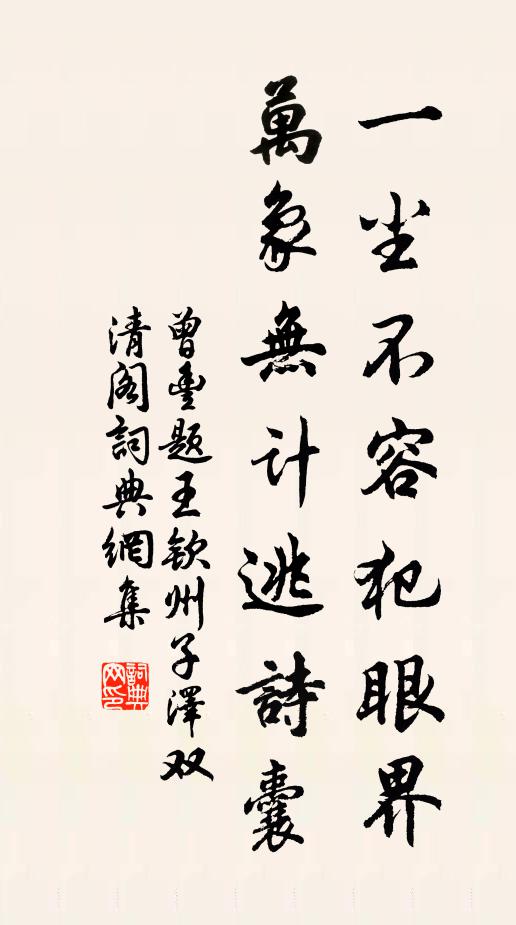 一尘不容犯眼界
萬象無计逃詩囊
曾豊题王钦州子澤双
清阁詞典網集
詞典网印